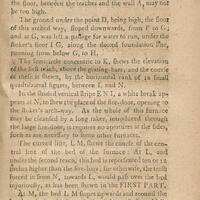 the floor, between the teaches and the wall A, may not
be too high.
The ground under the point D, being high, the floor
of this arched way, sloped downwards, from F to G;
and at G, was left a passage for water to run, under the
stoker's floor I G, along the second foundation line,
running from below G, to H.
The semicircle concentric to K, shews the elevation
of the first teach, above the grating-bars; and the couple
of these is shewn, by the horizontal rank of 12 small
quadrangular figures, between I, and N.
In the shaded vertical stripe E N I, a white break ap-
pears at N, to shew the place of the fire-door, opening to
the stoker's arch-way. As the whole of this furnace
may be cleaned by a long raker, introduced through
the large fire-door, it requires no apertures of the sides,
such as are necessary to some other furnaces.
The curved line, L M, shews the couple of the cen-
tral line of the bed of the furnace: At L, and
under the second teach, this bed is represented ten or 12
inches higher than the fire-bars; for otherwise, the teeth
forced in from N, towards L, would pass over the bed
injuriously, as has been shewn in the FIRST PART.
At M, the bed L M slopes upwards and round the